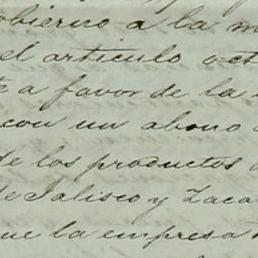 obierno a la m
el articulo oct
e a favor de la
con un abono
de los productos
de Jalisco y Zaca
ue la empresa